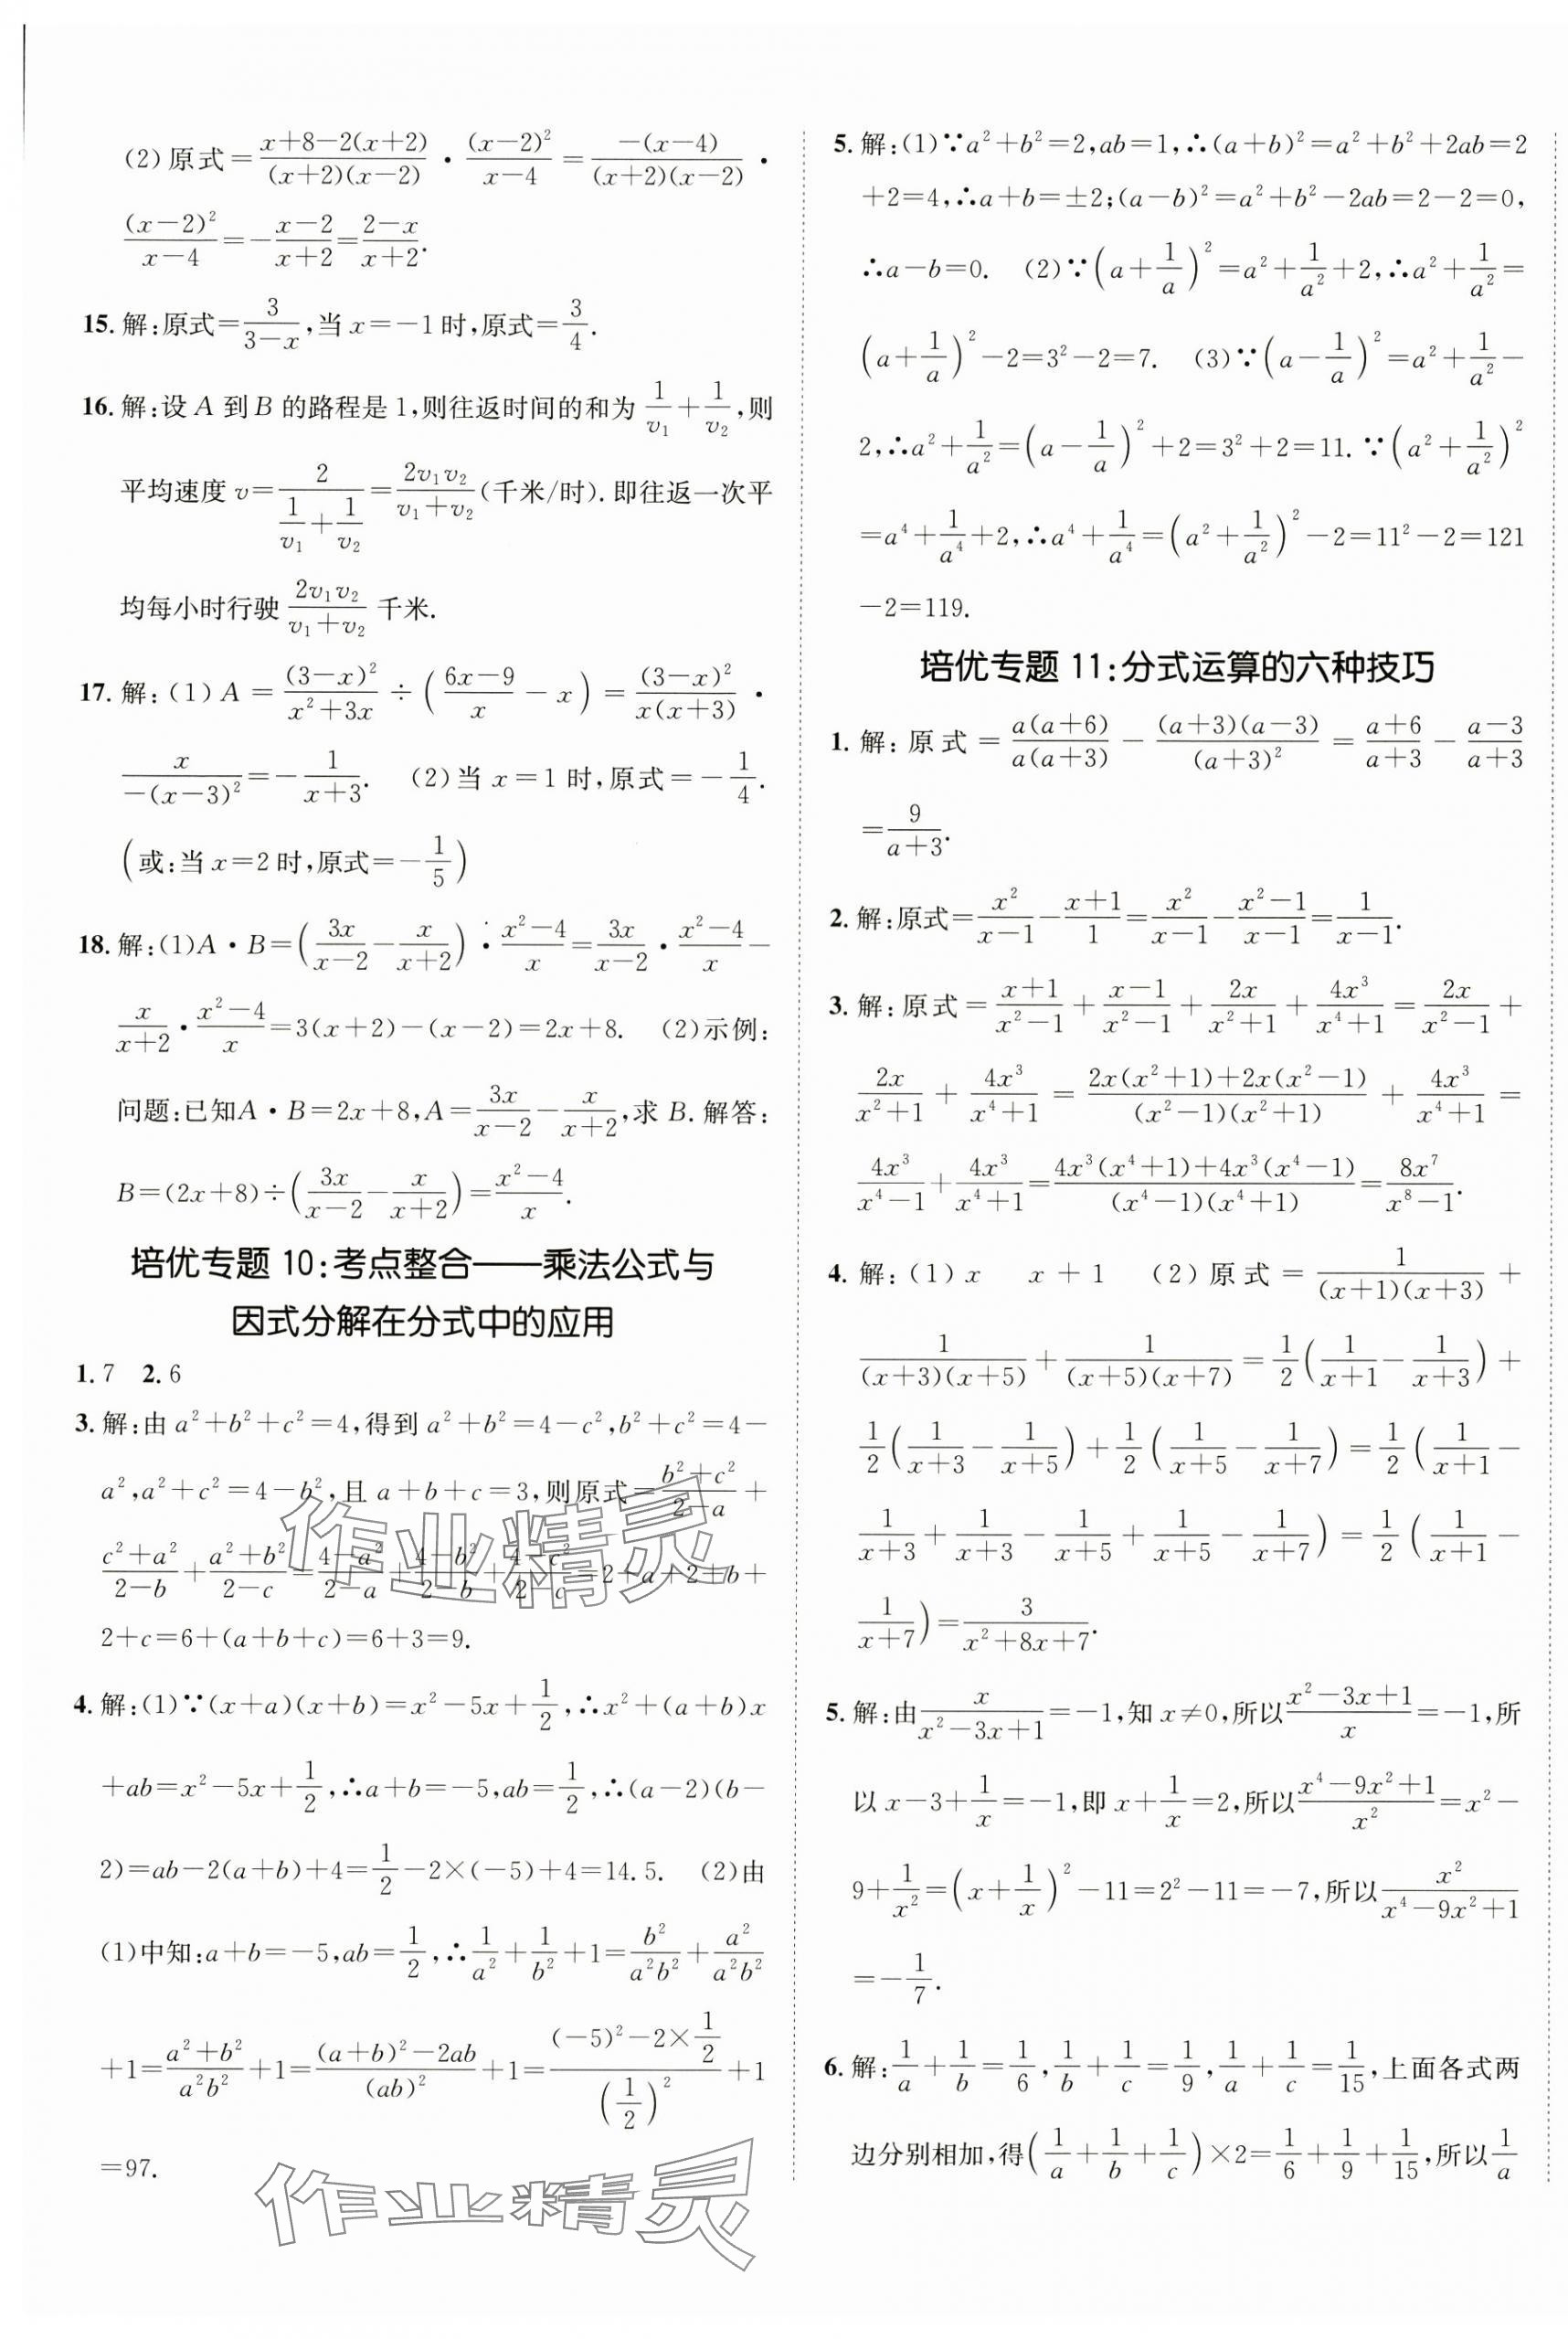 (2)原式=\frac{x+8-2(x+2)}{(x+2)(x-2)}·\frac{(x-2)^2}{x-4}=\frac{-(x-4)}{(x+2)(x-2)}·
\frac{(x-2)^2}{x-4}=-\frac{x-2}{x+2}=\frac{2-x}{x+2}.
15.解:原式=\frac{3}{3-x},当x=-1时,原式=\frac{3}{4}.
16.解:设A到B的路程是1,则往返时间的和为\frac{1}{v_1}+\frac{1}{v_2},则
平均速度v=\frac{2}{\frac{1}{v_1}+\frac{1}{v_2}}=\frac{2v_1v_2}{v_1+v_2}(千米/时).即往返一次平
均每小时行驶\frac{2v_1v_2}{v_1+v_2}千米.
17.解:(1)A=\frac{(3-x)^2}{x^2+3x}÷(\frac{6x-9}{x}-x)=\frac{(3-x)^2}{x(x+3)}·
\frac{x}{-(x-3)^2}=-\frac{1}{x+3}. (2)当x=1时,原式=-\frac{1}{4}.
(或:当x=2时,原式=-\frac{1}{5})
18.解:(1)A·B=(\frac{3x}{x-2}-\frac{x}{x+2})·\frac{x^2-4}{x}=\frac{3x}{x-2}·\frac{x^2-4}{x}-
\frac{x}{x+2}·\frac{x^2-4}{x}=3(x+2)-(x-2)=2x+8. (2)示例:
问题:已知A·B=2x+8,A=\frac{3x}{x-2}-\frac{x}{x+2},求B.解答:
B=(2x+8)÷(\frac{3x}{x-2}-\frac{x}{x+2})=\frac{x^2-4}{x}.
培优专题10:考点整合——乘法公式与
因式分解在分式中的应用
1.7 2.6
3.解:由a^2+b^2+c^2=4,得到a^2+b^2=4-c^2,b^2+c^2=4-
a^2,a^2+c^2=4-b^2,且a+b+c=3,则原式=\frac{b^2+c^2}{2-a}+
\frac{c^2+a^2}{2-b}+\frac{a^2+b^2}{2-c}=\frac{4-a^2}{2-a}+\frac{4-b^2}{2-b}+\frac{4-c^2}{2-c}=2+a+2+b+
2+c=6+(a+b+c)=6+3=9.
4.解:(1)∵(x+a)(x+b)=x^2-5x+\frac{1}{2},∴x^2+(a+b)x
+ab=x^2-5x+\frac{1}{2},∴a+b=-5,ab=\frac{1}{2},∴(a-2)(b-
2)=ab-2(a+b)+4=\frac{1}{2}-2×(-5)+4=14.5. (2)由
(1)中知:a+b=-5,ab=\frac{1}{2},∴\frac{1}{a^2}+\frac{1}{b^2}+1=\frac{b^2}{a^2b^2}+\frac{a^2}{a^2b^2}
+1=\frac{a^2+b^2}{a^2b^2}+1=\frac{(a+b)^2-2ab}{(ab)^2}+1=\frac{(-5)^2-2×\frac{1}{2}}{(\frac{1}{2})^2}+1
=97.
作业精灵
作业精灵
5.解:(1)∵a^2+b^2=2,ab=1,∴(a+b)^2=a^2+b^2+2ab=2
+2=4,∴a+b=±2;(a-b)^2=a^2+b^2-2ab=2-2=0,
∴a-b=0. (2)∵(a+\frac{1}{a})^2=a^2+\frac{1}{a^2}+2,∴a^2+\frac{1}{a^2}=
(a+\frac{1}{a})^2-2=3^2-2=7. (3)∵(a-\frac{1}{a})^2=a^2+\frac{1}{a^2}-
2,∴a^2+\frac{1}{a^2}=(a-\frac{1}{a})^2+2=3^2+2=11.∵(a^2+\frac{1}{a^2})^2
=a^4+\frac{1}{a^4}+2,∴a^4+\frac{1}{a^4}=(a^2+\frac{1}{a^2})^2-2=11^2-2=121
-2=119.
培优专题11:分式运算的六种技巧
1.解:原式=\frac{a(a+6)}{a(a+3)}-\frac{(a+3)(a-3)}{(a+3)^2}=\frac{a+6}{a+3}-\frac{a-3}{a+3}
=\frac{9}{a+3}.
2.解:原式=\frac{x^2}{x-1}-\frac{x+1}{1}=\frac{x^2}{x-1}-\frac{x^2-1}{x-1}=\frac{1}{x-1}.
3.解:原式=\frac{x+1}{x^2-1}+\frac{x-1}{x^2-1}+\frac{2x}{x^2+1}+\frac{4x^3}{x^4+1}=\frac{2x}{x^2-1}+
\frac{2x}{x^2+1}+\frac{4x^3}{x^4+1}=\frac{2x(x^2+1)+2x(x^2-1)}{(x^2-1)(x^2+1)}+\frac{4x^3}{x^4+1}=
\frac{4x^3}{x^4-1}+\frac{4x^3}{x^4+1}=\frac{4x^3(x^4+1)+4x^3(x^4-1)}{(x^4-1)(x^4+1)}=\frac{8x^7}{x^8-1}.
4.解:(1)x x+1 (2)原式=\frac{1}{(x+1)(x+3)}+
\frac{1}{(x+3)(x+5)}+\frac{1}{(x+5)(x+7)}=\frac{1}{2}(\frac{1}{x+1}-\frac{1}{x+3})+
\frac{1}{2}(\frac{1}{x+3}-\frac{1}{x+5})+\frac{1}{2}(\frac{1}{x+5}-\frac{1}{x+7})=\frac{1}{2}(\frac{1}{x+1}-
\frac{1}{x+3}+\frac{1}{x+3}-\frac{1}{x+5}+\frac{1}{x+5}-\frac{1}{x+7})=\frac{1}{2}(\frac{1}{x+1}-
\frac{1}{x+7})=\frac{3}{x^2+8x+7}.
5.解:由\frac{x}{x^2-3x+1}=-1,知x≠0,所以\frac{x^2-3x+1}{x}=-1,所
以x-3+\frac{1}{x}=-1,即x+\frac{1}{x}=2,所以\frac{x^4-9x^2+1}{x^2}=x^2-
9+\frac{1}{x^2}=(x+\frac{1}{x})^2-11=2^2-11=-7,所以\frac{x^2}{x^4-9x^2+1}
=-\frac{1}{7}.
6.解:\frac{1}{a}+\frac{1}{b}=\frac{1}{6},\frac{1}{b}+\frac{1}{c}=\frac{1}{9},\frac{1}{a}+\frac{1}{c}=\frac{1}{15},上面各式两
边分别相加,得(\frac{1}{a}+\frac{1}{b}+\frac{1}{c})×2=\frac{1}{6}+\frac{1}{9}+\frac{1}{15},所以\frac{1}{a}